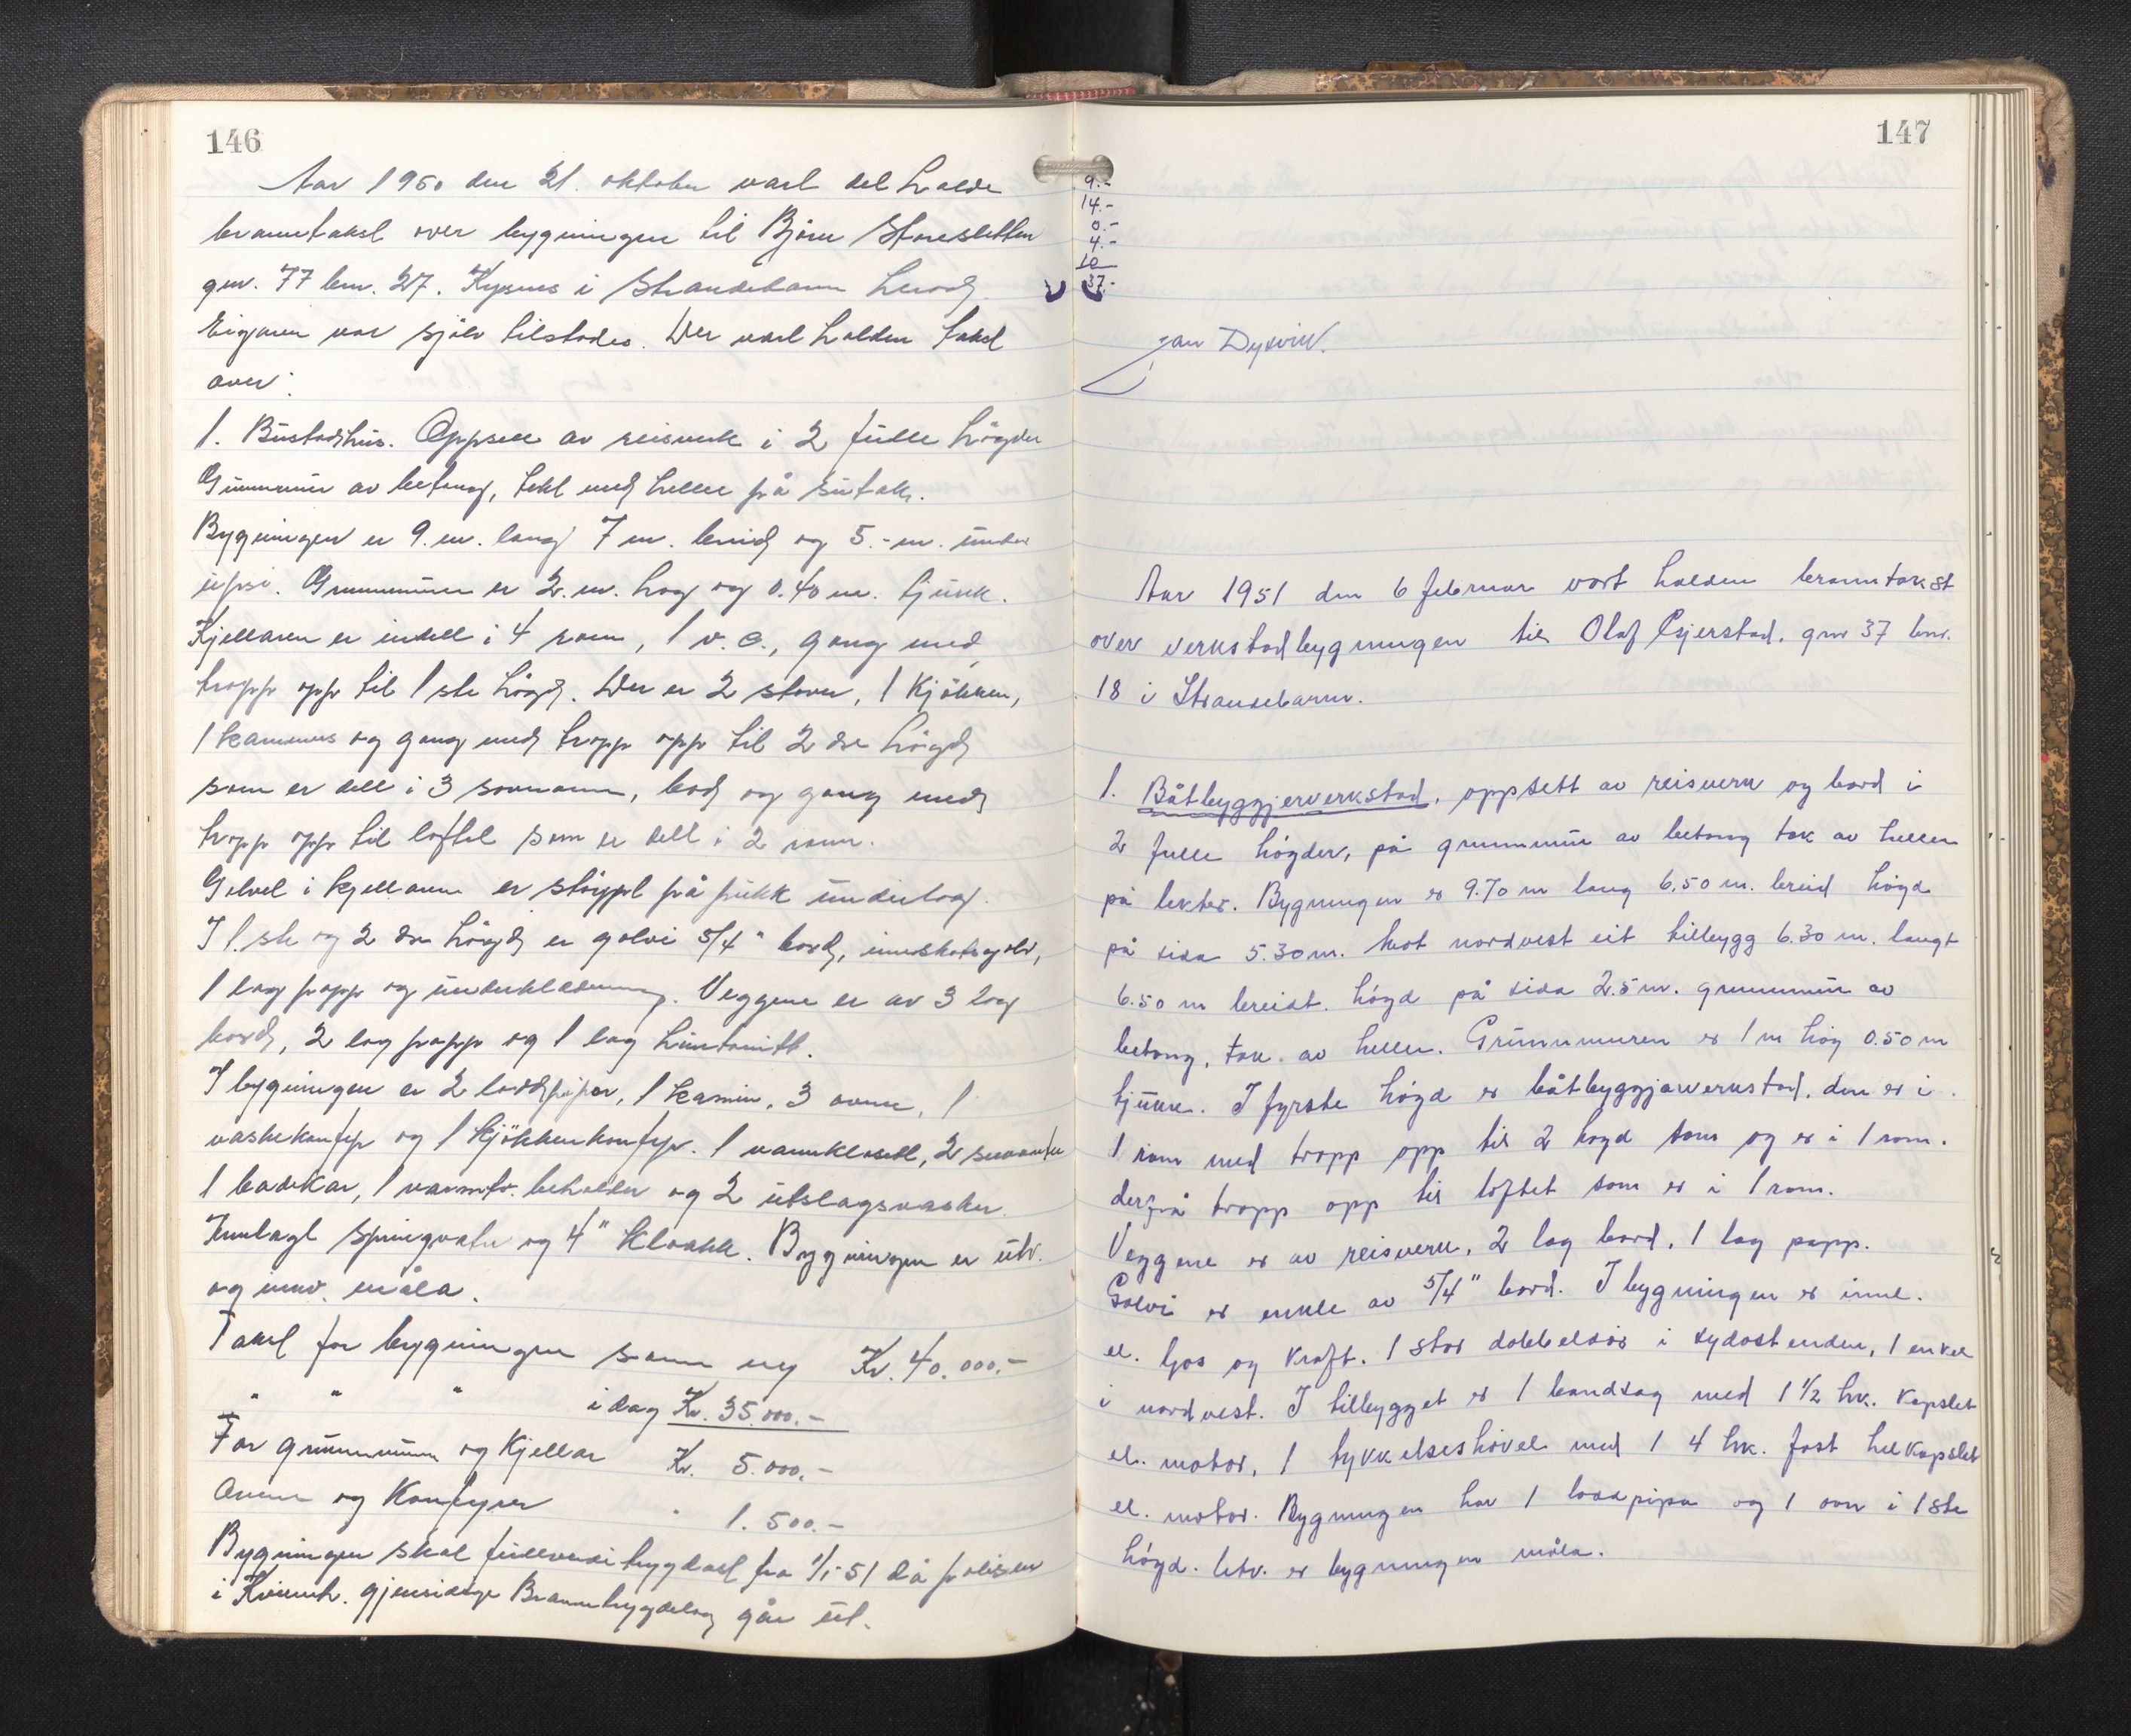 146
Aar 1950 den 21. oktober vart det halde
branntakst over bygningen til Bjørn Storesletten
gnr. 77 bnr. 27. Kysnes i Strandebarm herad.
Eigaren var sjølv tilstades. Der vart halden takst
over:
1. Bustadhus. Oppsett av reisverk i 2 fulle høgder
Grunnmur av betong, tekt med heller på sutak.
Bygningen er 9. m. lang 7 m. breid og 5.- m. under
upsi. Grunnmuren er 2. m. høg og 0.40 m. tjukk.
Kjellaren er indelt i 4 rom, 1 v.c., gang med
tropp opp til 1ste høgd. Der er 2 stover, 1 kjøkken,
1 kammers og gang med tropp opp til 2dre høgd
som er delt i 3 soverom, bod og gang med
tropp opp til loftet som er delt i 2 rom.
Golvet i kjellaren er støypt på pukk underlag.
I 1.ste og 2dre høgd er golvi 5/4" bord, innskotsgolv,
1 lag papp og underkledning. Veggene er av 3 lag
bord, 2 lag papp og 1 lag huntonitt.
I bygningen er 2 loddpipor, 1 kamin, 3 ovner, 1
vaskekomfyr og 1 kjøkkenkomfyr. 1 vannklosett, 2 servanter
1 badekar, 1 varmtv. beholder og 2 utslagsvasker.
Innlagt springvatn og 4" kloakk. Bygningen er utv.
og innv. måla.
Takst for bygningen som ny Kr. 40.000.-
" " " i dag Kr. 35.000.-
For grunnmur og kjellar Kr. 5.000.-
Ovner og komfyrer " 1.500.-
Bygningen skal fullverdi trygdast fra 1/1-51 då polisen
i Kvinnh. gjensidige Branntrygdelag går ut.
147
9.-
14.-
0.-
4.-
10
37.-
Jan Dysvik.
Aar 1951 den 6 februar vart halden branntakst
over verkstadbygningen til Olaf Gjerstad. gnr 37 bnr.
18 i Strandebarm.
1. Båtbyggjerverkstad, oppsett av reisverk og bord i
2 fulle høgder, på grunnmur av betong tak av heller
på lekter. Bygningen er 9.70 m lang 6.50 m. breid høgd
på sida 5.30 m. Mot nordvest eit tilbygg 6.30 m. langt
6.50 m breidt. høgd på sida 2.5 m. grunnmur av
betong, tak av heller. Grunnmuren er 1 m høg 0.50 m
tjukk. I fyrste høgd er båtbyggjarverkstad, den er i
1 rom med tropp opp til 2 høgd som og er i 1 rom.
derfrå tropp opp til loftet som er i 1 rom.
Veggene er av reisverk, 2 lag bord, 1 lag papp.
Golvi er enkle av 5/4" bord. I bygningen er innl.
el. ljos og kraft. 1 stor dobbeldør i sydost enden, 1 enkel
i nordvest. I tilbygget er 1 bandsag med 1 1/2 hk. kapslet
el. motor, 1 tykkelseshøvel med 1 4 hk. fast helkapslet
el. motor. Bygningen har 1 loddpipa og 1 ovn i 1ste
høgd. Utv. er bygningen måla.